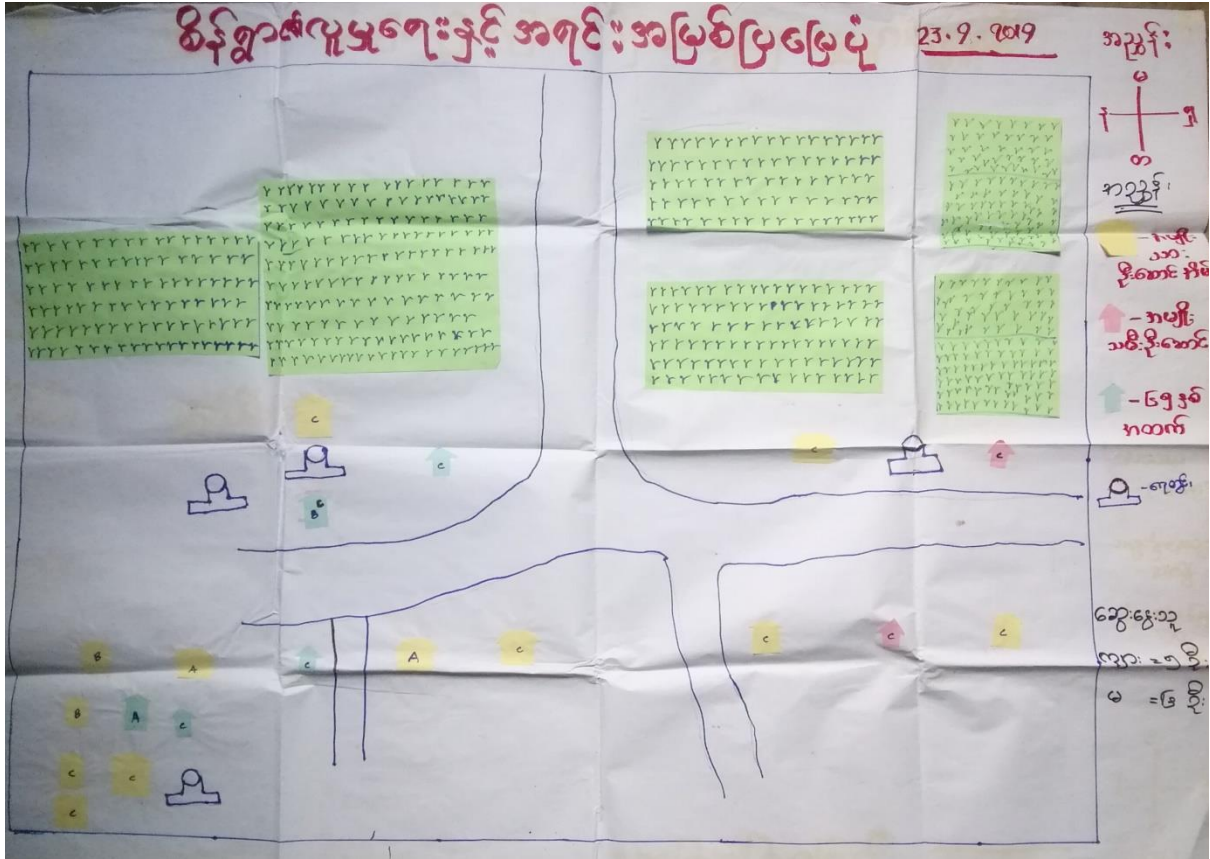 စိန်ရွာ၏လူမှုရေးနှင့်အရင်းအမြစ်ပြမြေပုံ 23.9.2019
အညွှန်း
မ
န ရှ
တ
အညွှန်း
- အမျိုး
သား
ဦးဆောင်အိမ်
- အမျိုး
သမီးဦးဆောင်
- ၆၅ နှစ်
အထက်
- ရေတွင်း
ဆွေးနွေးသူ
ကျား = ၅ ဦး
မ = ၆ ဦး
C
C
C
C
B
C
C
C
C
A
C
B
A
C
B
A
C
C
C
C